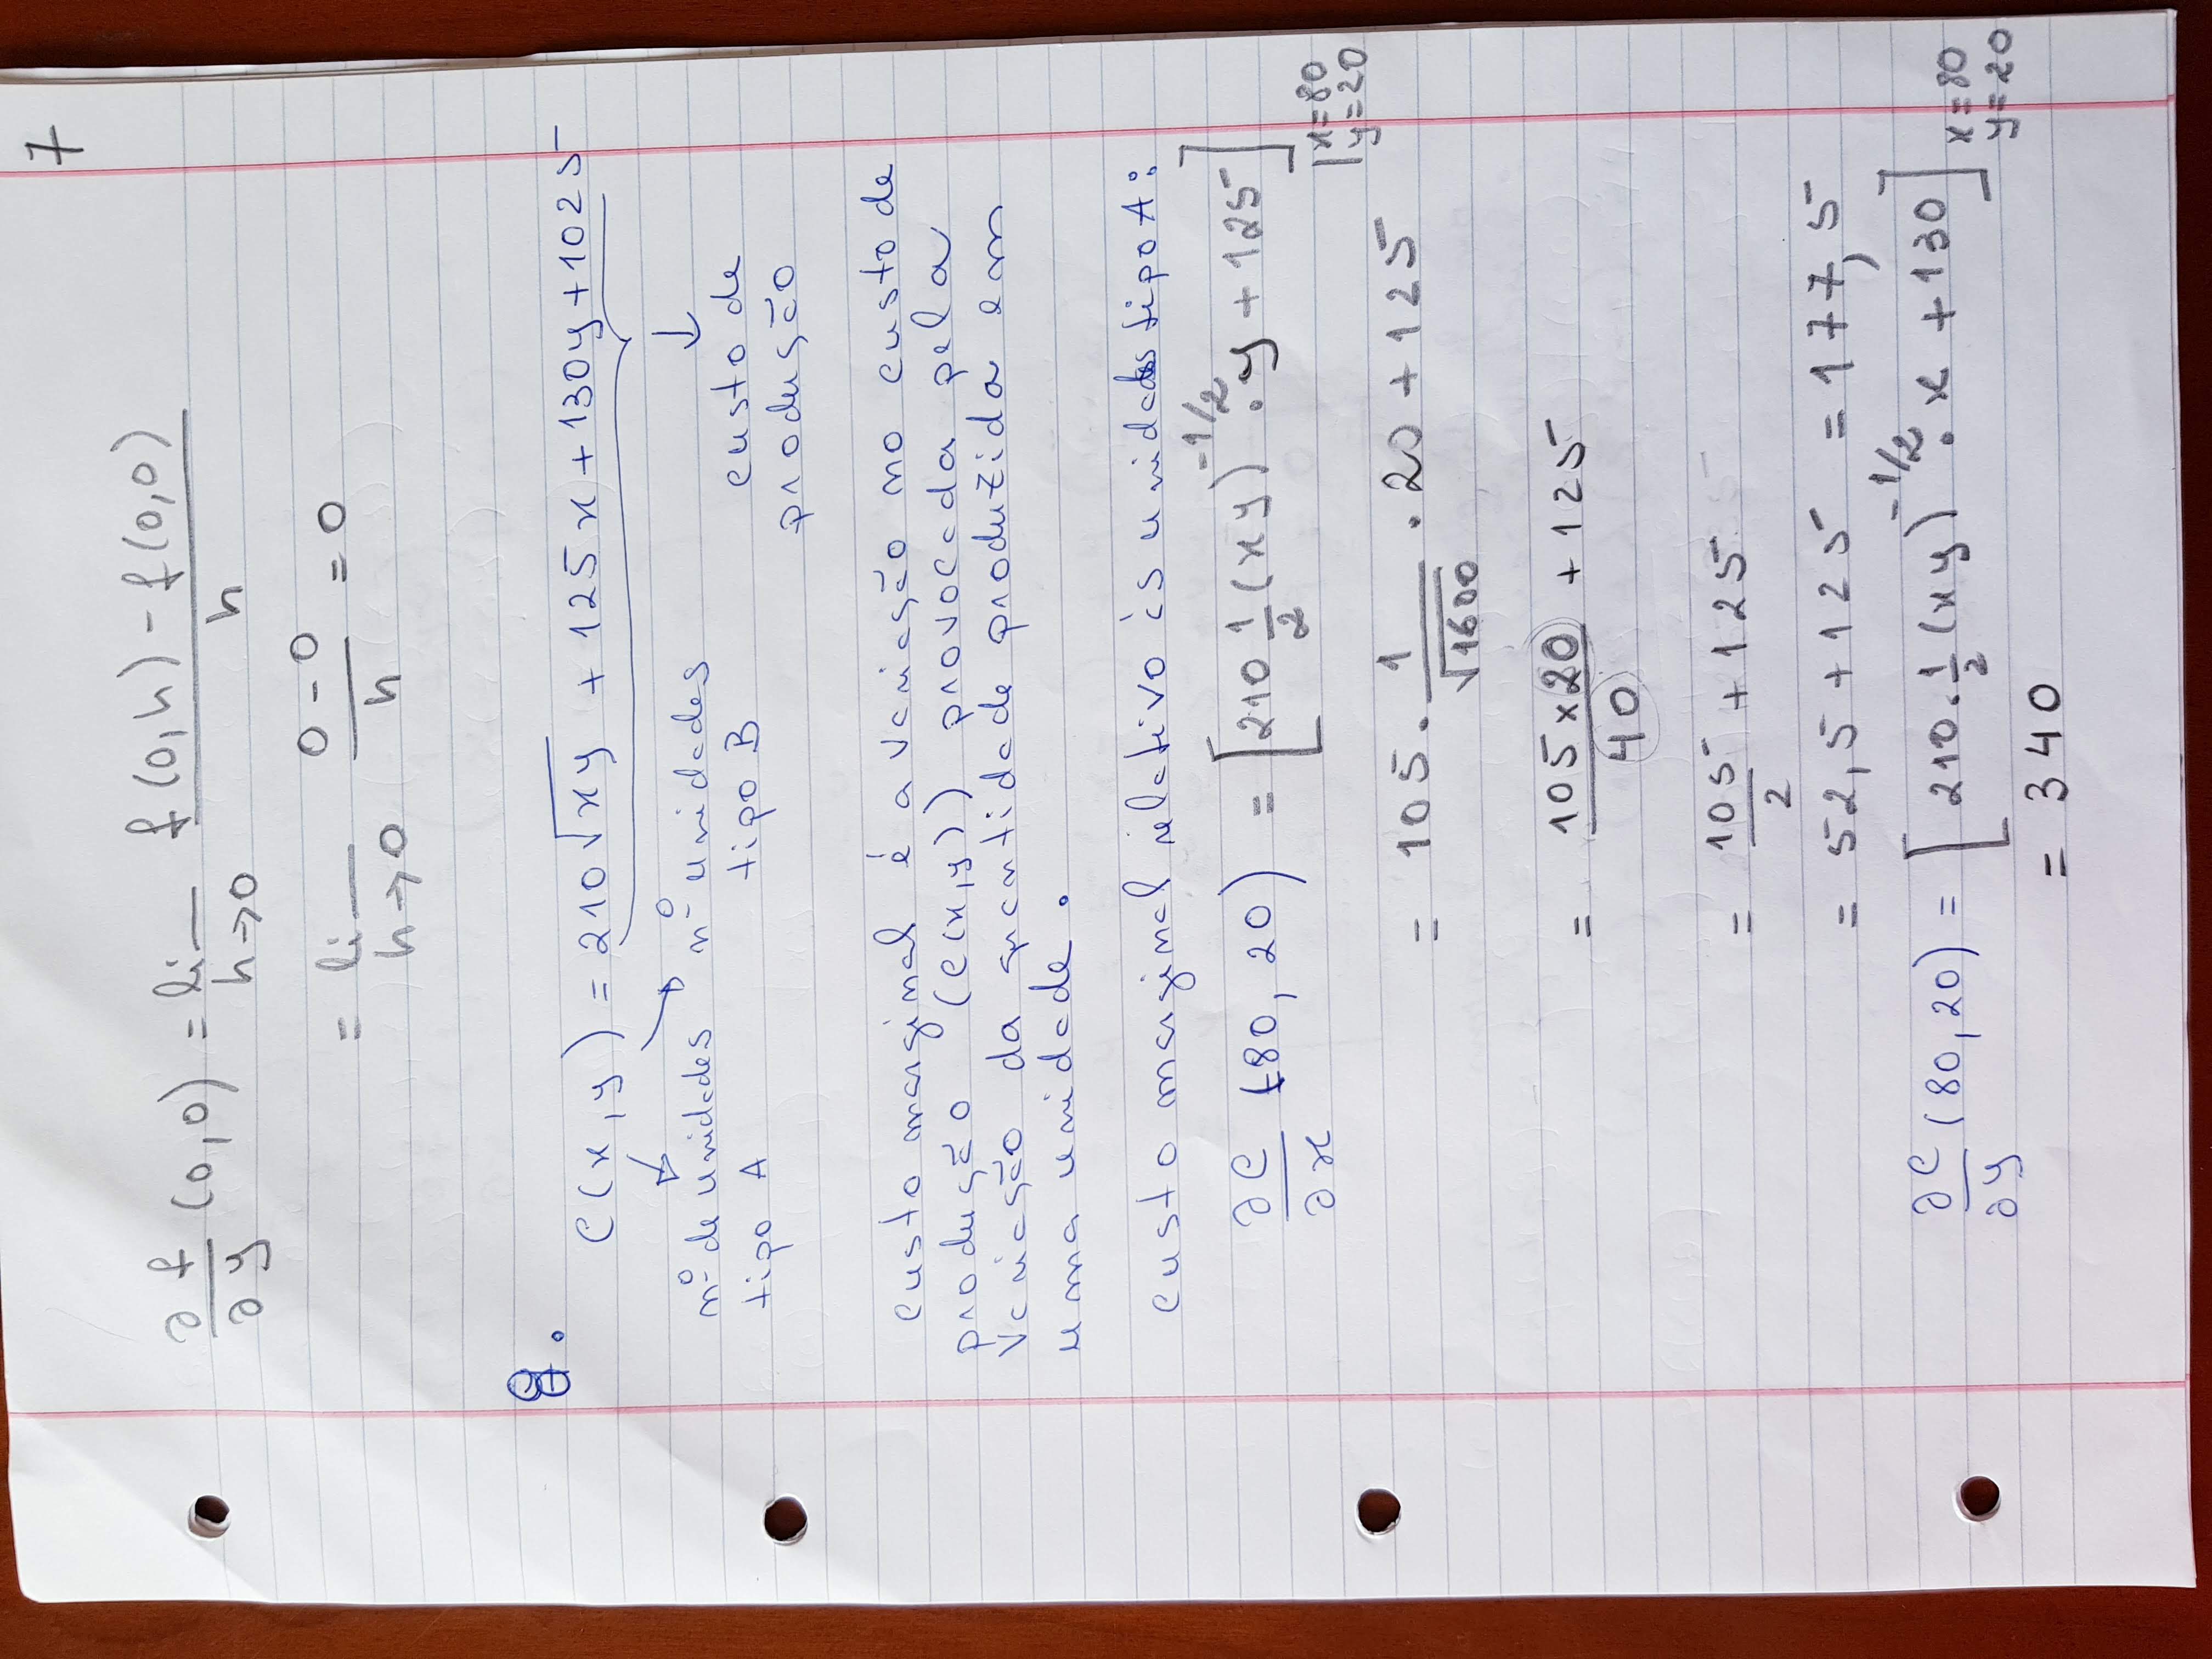 7
∂f/∂y (0,0) = lim h→0 (f(0,h) - f(0,0))/h
= lim h→0 (0-0)/h = 0
8.
C(x,y) = 210√xy + 125x + 130y + 1025
nº de unidades tipo A
nº unidades tipo B
custo de produção
custo marginal é a variação no custo de
produção (C(x,y)) provocada pela
variação da quantidade produzida em
uma unidade.
custo marginal relativo às unidades tipo A:
∂C/∂x (80, 20) = [210 1/2 (xy)^-1/2 . y + 125] |x=80 y=20
= 105 . 1/√1600 . 20 + 125
= 105×20/40 + 125
= 105/2 + 125
= 52,5 + 125 = 177,5
∂C/∂y (80,20) = [210 . 1/2 (xy)^-1/2 . x + 130] x=80 y=20
= 340